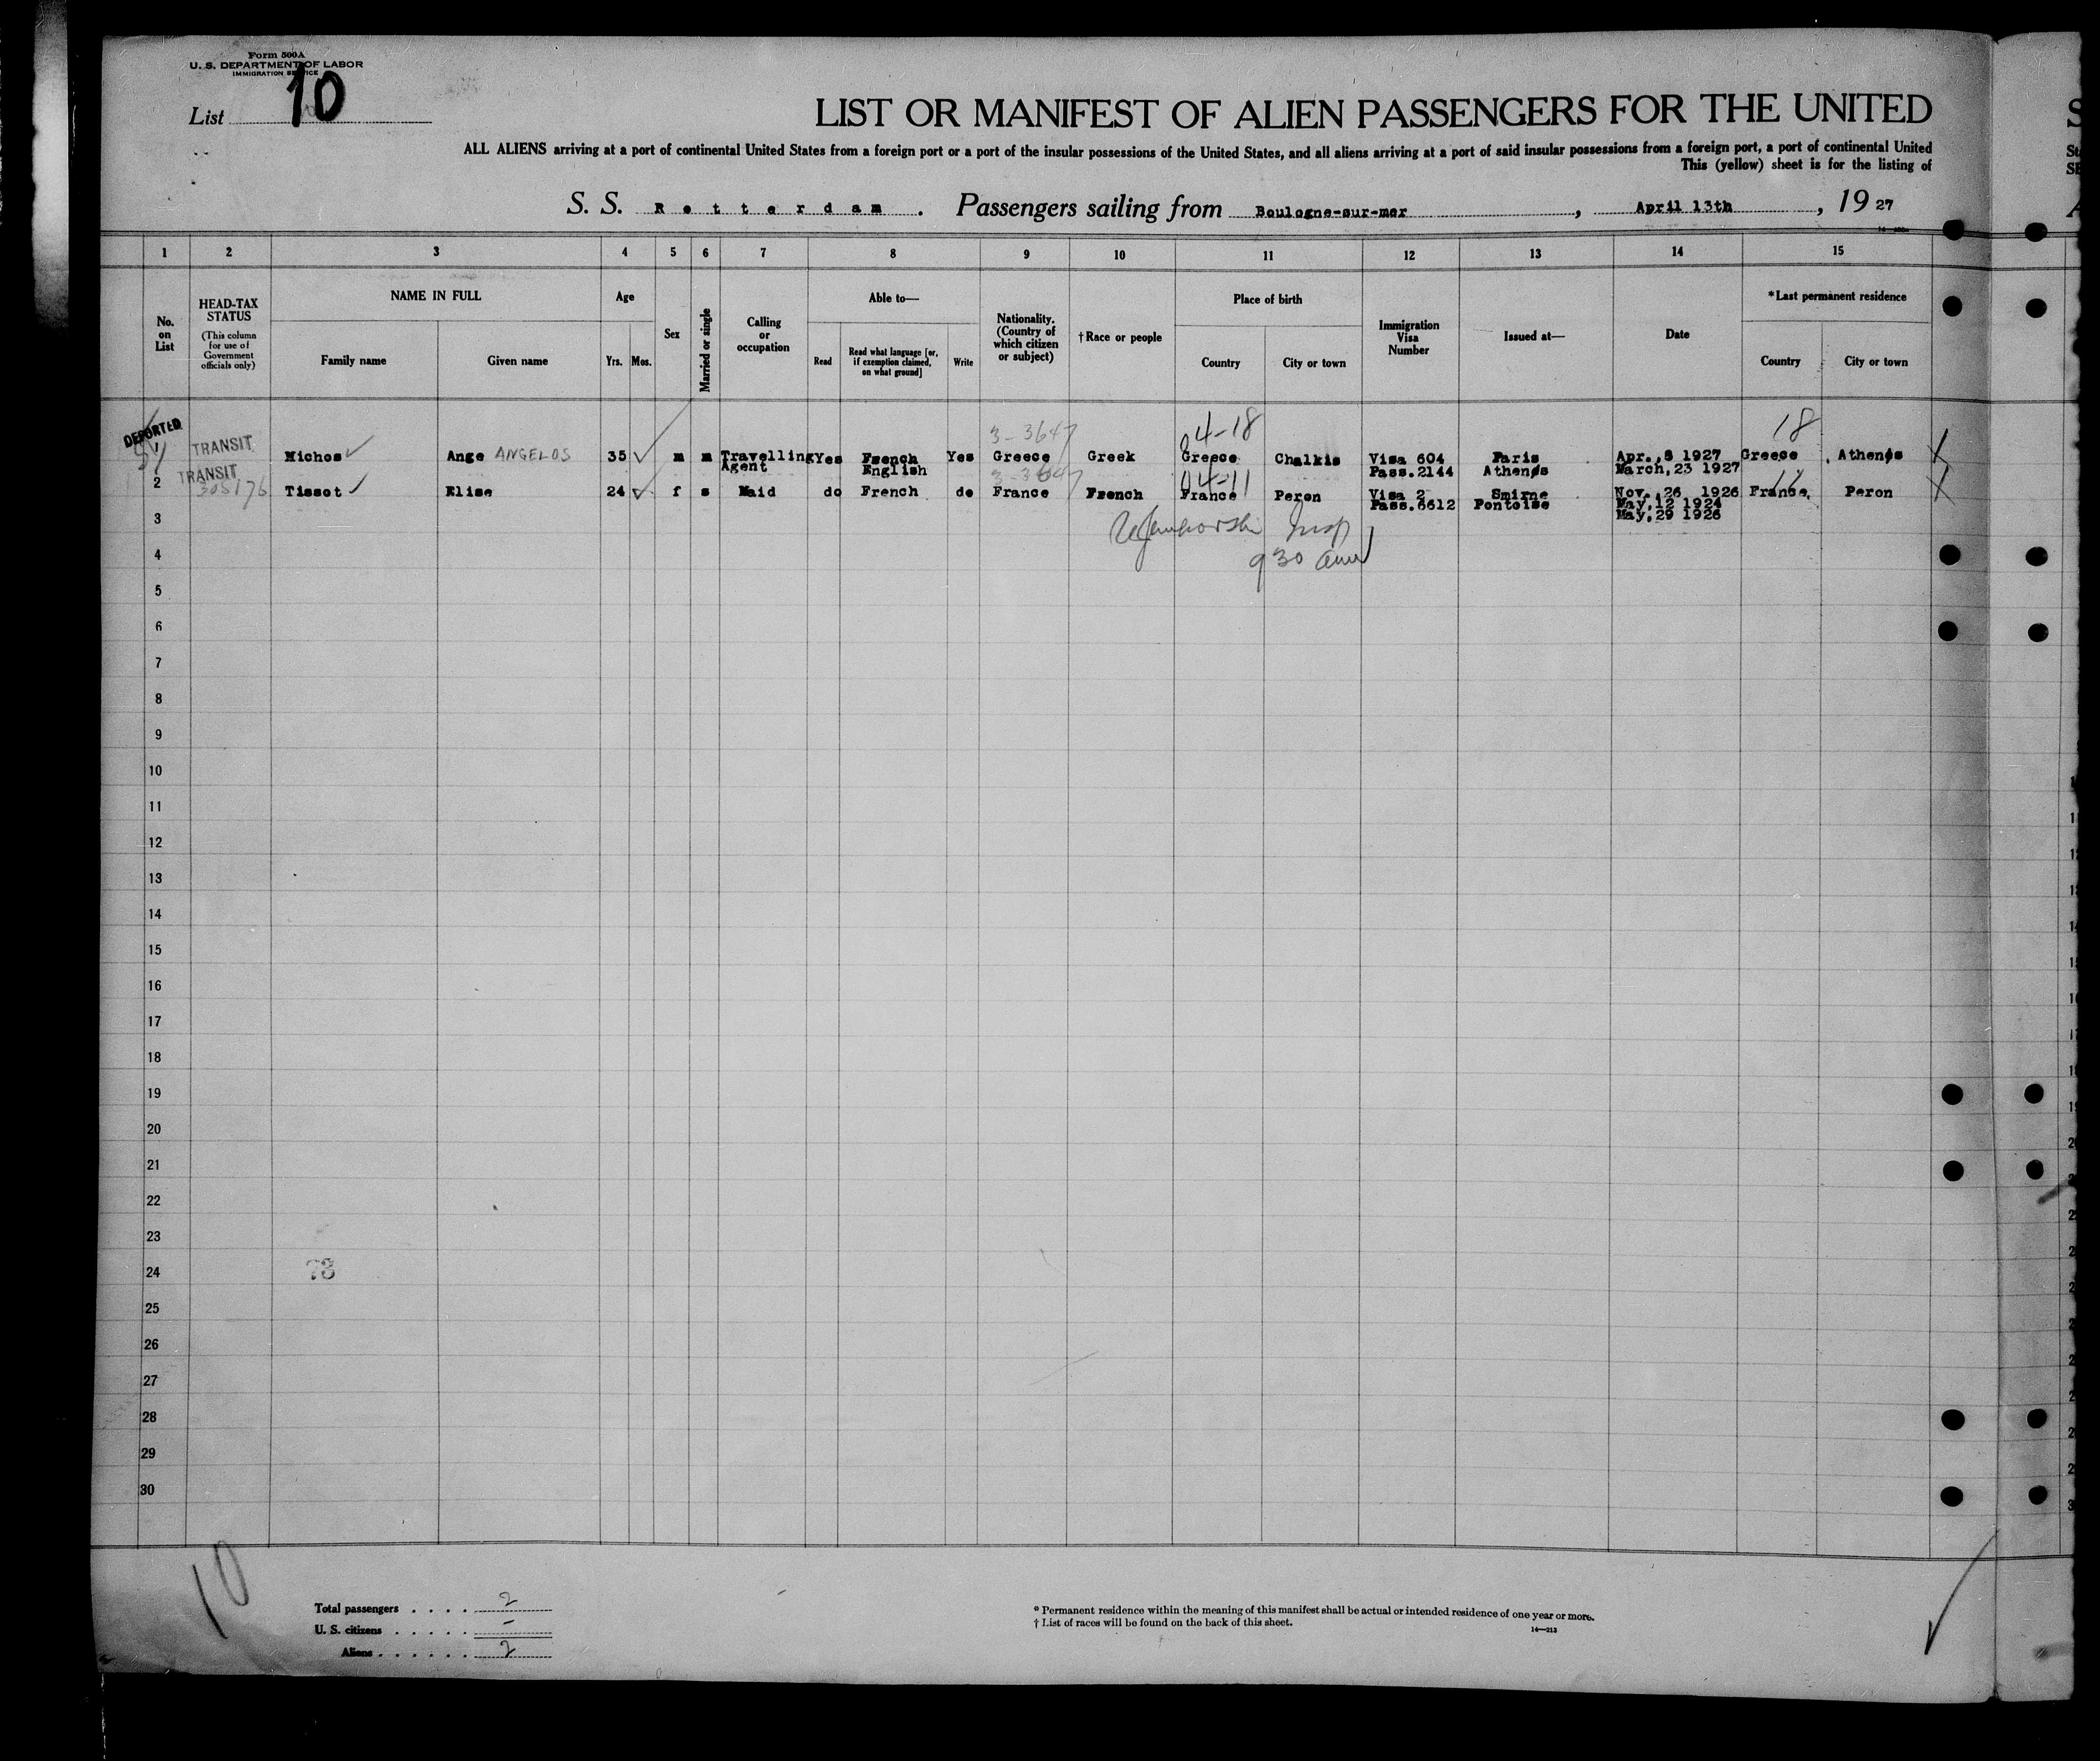 Form 500A
U. S. DEPARTMENT OF LABOR
IMMIGRATION SERVICE
List 10
LIST OR MANIFEST OF ALIEN PASSENGERS FOR THE UNITED
ALL ALIENS arriving at a port of continental United States from a foreign port or a port of the insular possessions of the United States, and all aliens arriving at a port of said insular possessions from a foreign port, a port of continental United
This (yellow) sheet is for the listing of
S. S. Rotterdam. Passengers sailing from Boulogne-sur-mer, April 13th, 19 27
1 2 3 4 5 6 7 8 9 10 11 12 13 14 15
No. on List
HEAD-TAX STATUS
(This column for use of Government officials only)
NAME IN FULL
Family name Given name
Age
Yrs. Mos.
Sex
Married or single
Calling or occupation
Able to—
Read
Read what language [or, if exemption claimed, on what ground]
Write
Nationality. (Country of which citizen or subject)
†Race or people
Place of birth
Country City or town
Immigration Visa Number
Issued at—
Date
*Last permanent residence
Country City or town
DEPORTED
3-3647 04-18 18
1 TRANSIT Michos Ange ANGELOS 35 m m Travelling Agent Yes French English Yes Greece Greek Greece Chalkis Visa 604 Paris Apr., 5 1927 Greece, Athens
Pass.2144 Athens March, 23 1927
3-3647 04-11 11
2 TRANSIT 305176 Tissot Elise 24 f s Maid do French do France French France Peron Visa 2 Smirne Nov. 26 1926 France, Peron
Pass.6612 Pontoise May, 12 1924
May, 29 1926
Insp
9 30 am
3
4
5
6
7
8
9
10
11
12
13
14
15
16
17
18
19
20
21
22
23
24
25
26
27
28
29
30
73
10
Total passengers . . . . 2
U. S. citizens . . . . . –
Aliens . . . . . . 2
* Permanent residence within the meaning of this manifest shall be actual or intended residence of one year or more.
† List of races will be found on the back of this sheet.
14—213